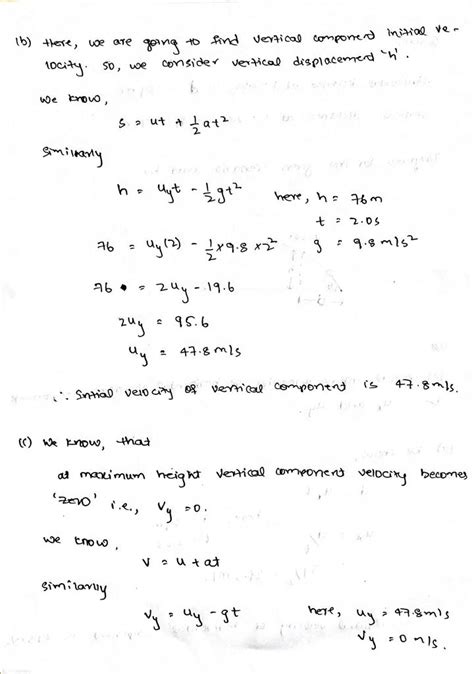 (b) Here, we are going to find vertical component initial ve-
locity. So, we consider vertical displacement 'h'.
we know,
s = ut + 1/2 at²
Similarly
h = u_y t - 1/2 gt² here, h = 76m
t = 2.0s
76 = u_y(2) - 1/2 × 9.8 × 2² g = 9.8 m/s²
76 = 2u_y - 19.6
2u_y = 95.6
u_y = 47.8 m/s
∴ Initial velocity of vertical component is 47.8 m/s.
(c) We know, that
at maximum height vertical component velocity becomes
'zero' i.e., v_y = 0.
we know,
v = u + at
similarly
v_y = u_y - gt here, u_y = 47.8 m/s
v_y = 0 m/s.